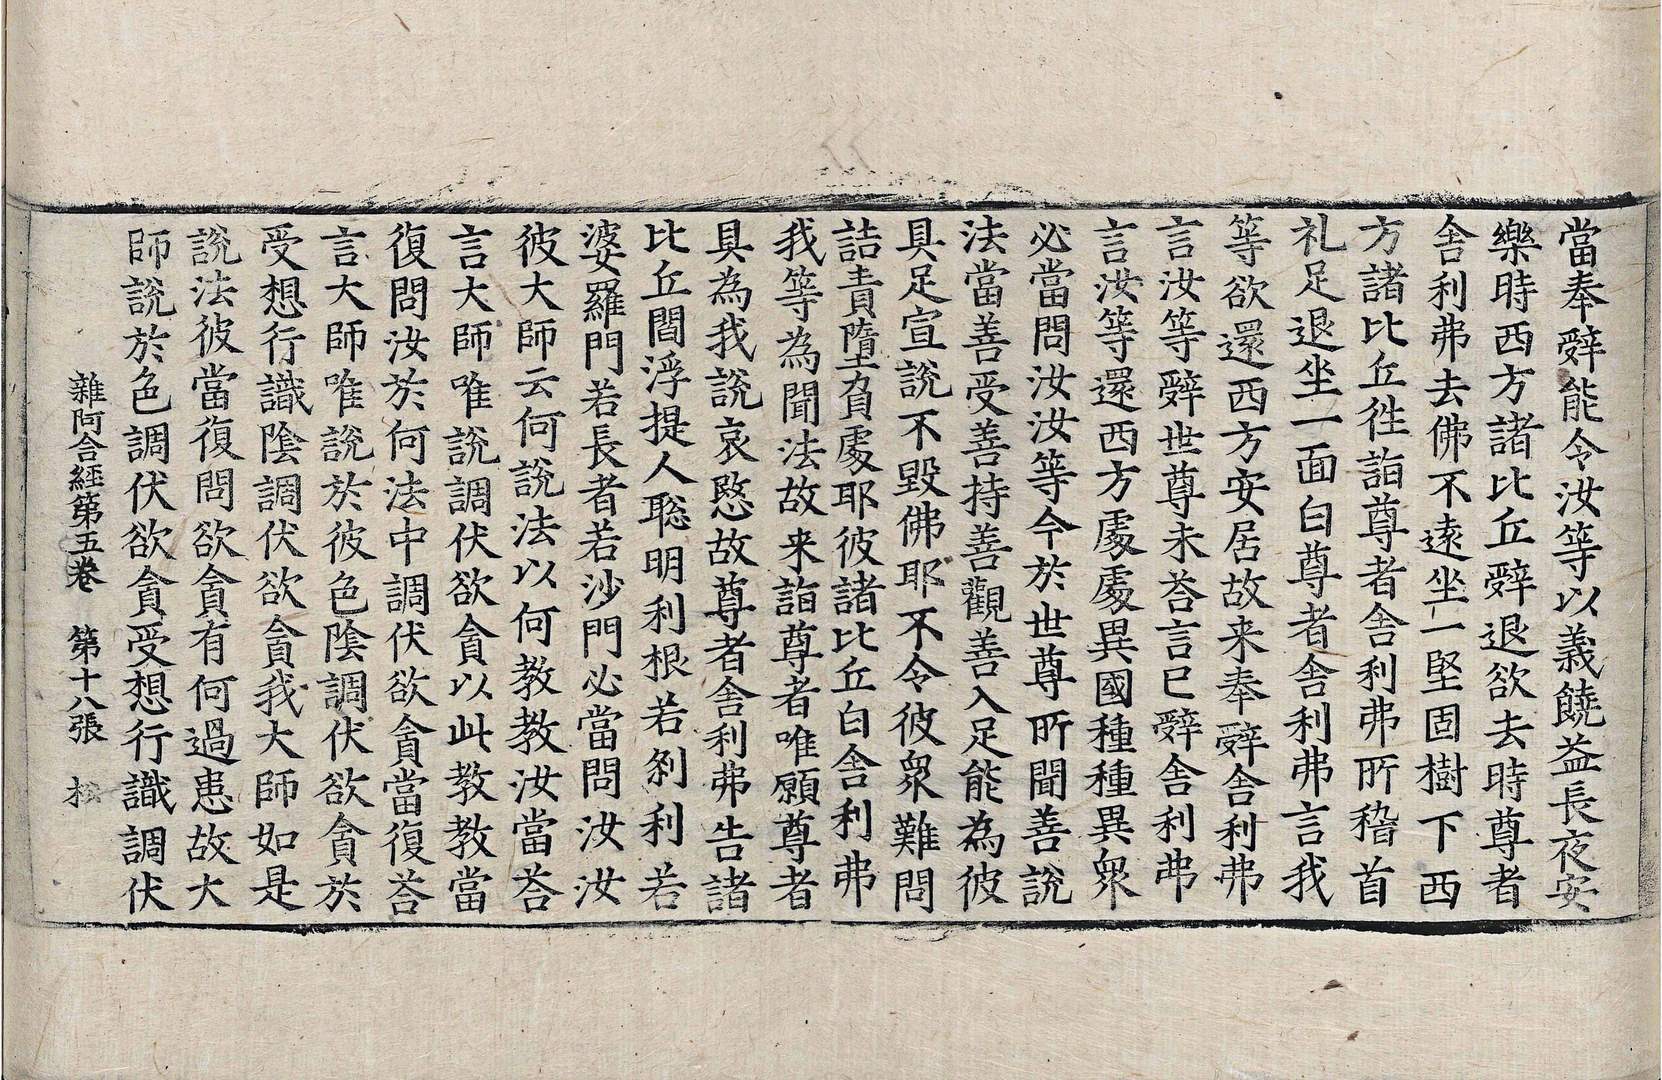 當奉辤能令汝等以義饒益長夜安
樂時西方諸比丘辤退欲去時尊者
舎利弗去佛不遠坐一堅固樹下西
方諸比丘徃詣尊者舎利弗所稽首
礼足退坐一面白尊者舎利弗言我
等欲還西方安居故来奉辤舎利弗
言汝等辤世尊未荅言已辤舎利弗
言汝等還西方處處異國種種異衆
必當問汝汝等今於世尊所聞善說
法當善受善持善觀善入足能為彼
具足宣說不毀佛耶不令彼衆難問
詰責墮負處耶彼諸比丘白舎利弗
我等為聞法故来詣尊者唯願尊者
具為我說哀愍故尊者舎利弗告諸
比丘閻浮提人聦明利根若剎利若
婆羅門若長者若沙門必當問汝汝
彼大師云何說法以何教教汝當荅
言大師唯說調伏欲貪以此教教當
復問汝於何法中調伏欲貪當復荅
言大師唯說於彼色陰調伏欲貪於
受想行識陰調伏欲貪我大師如是
說法彼當復問欲貪有何過患故大
師說於色調伏欲貪受想行識調伏
雜阿含経第五卷 第十八張 松